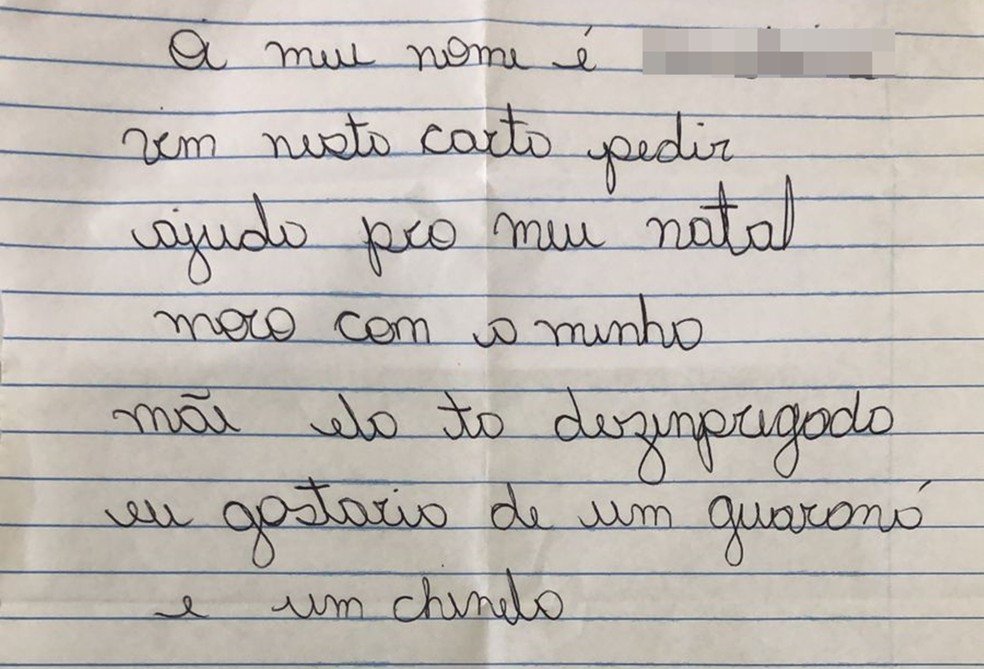 O meu nome é
vem nesta carta pedir
ajuda pro meu natal
moro com a minha
mãe ela ta dezenpregada
eu gostaria de um guaraná
e um chinelo